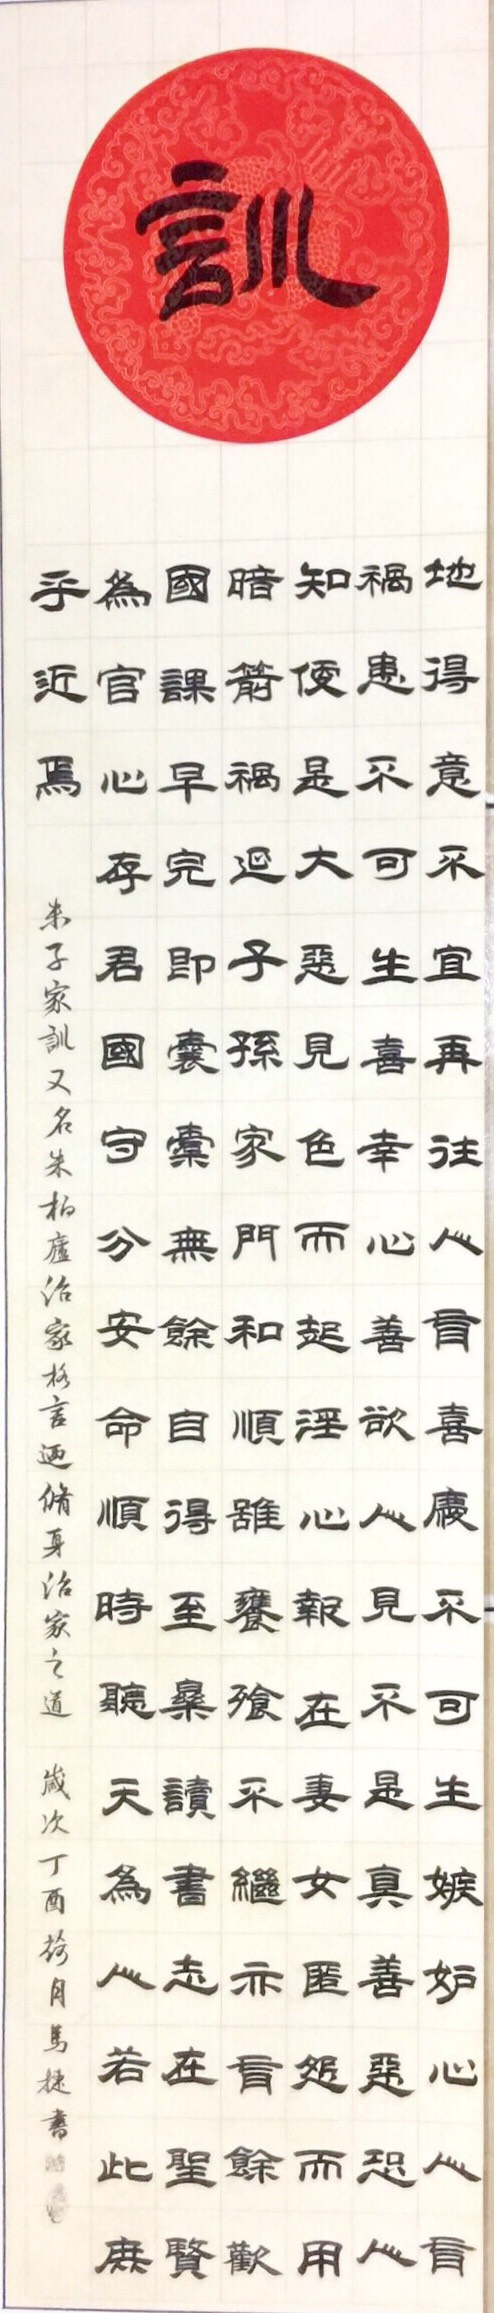 訓
地得意不宜再往人有喜慶不可生嫉妒心人有
禍患不可生喜幸心善欲人見不是真善惡恐人
知便是大惡見色而起淫心報在妻女匿怨而用
暗箭禍延子孫家門和順雖饔飧不繼亦有餘歡
國課早完即囊橐無餘自得至樂讀書志在聖賢
為官心存君國守分安命順時聽天為人若此庶
乎近焉
朱子家訓又名朱柏廬治家格言迺脩身治家之道 歲次丁酉荷月馬捷書